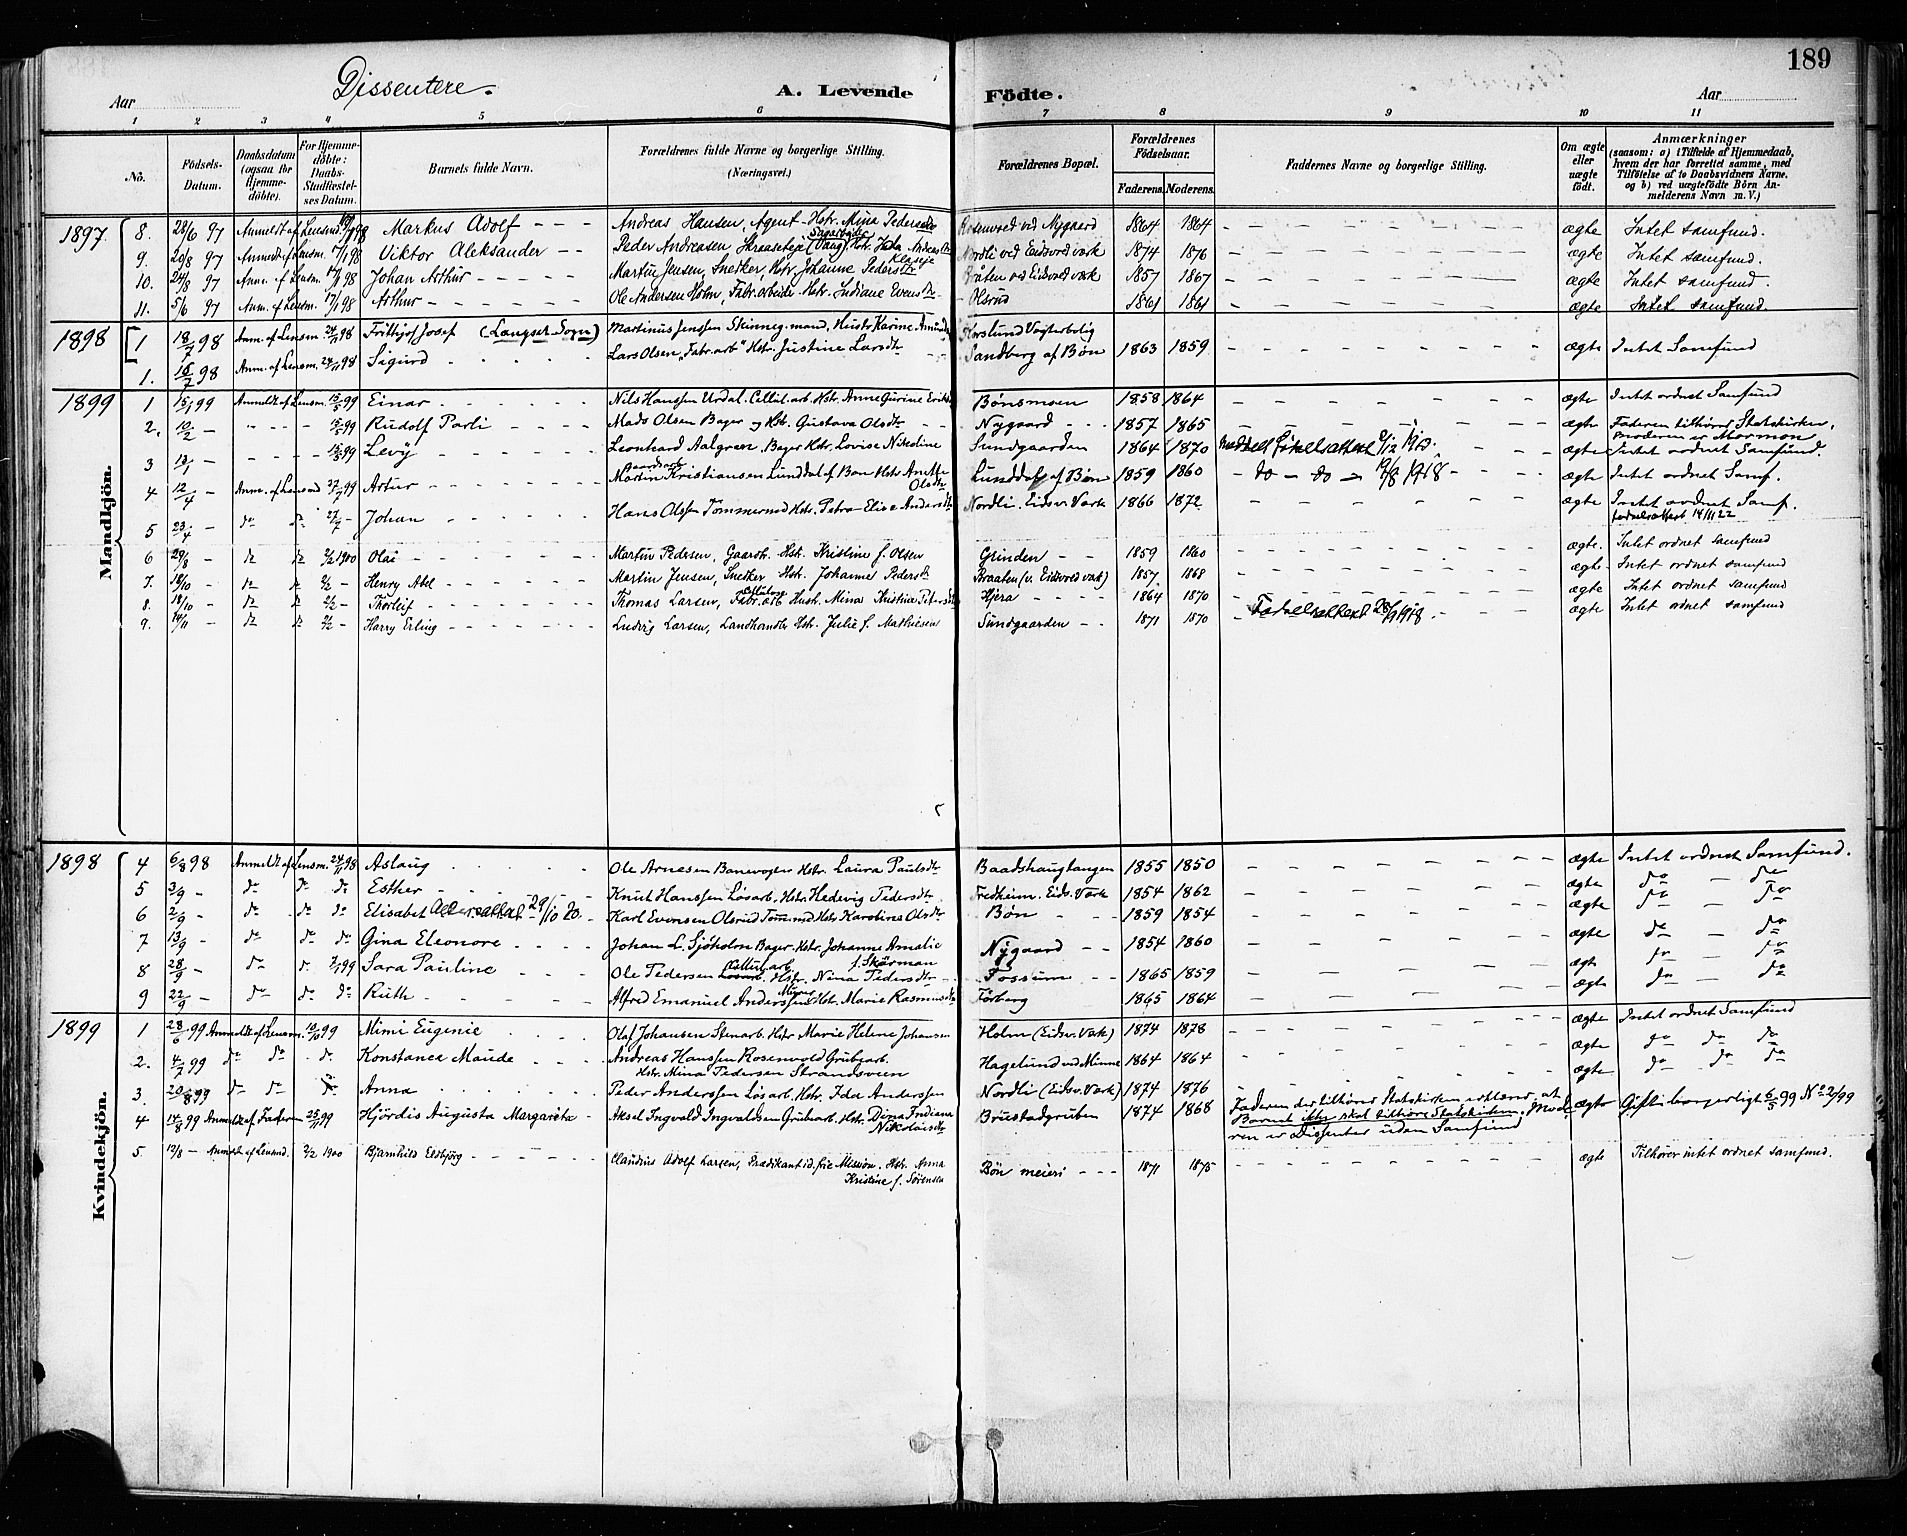 189
Dissentere.
Aar
A. Levende Födte.
Aar
1 2 3 4 5 6 7 8 9 10 11
No. | Födsels-Datum. | Daabsdatum (ogsaa for Hjemme-döbte). | For Hjemme-döbte: Daabs-Stadfæstel-ses Datum. | Barnets fulde Navn. | Forældrenes fulde Navne og borgerlige Stilling. (Næringsvei.) | Forældrenes Bopæl. | Forældrenes Födselsaar. Faderens. Moderens. | Faddernes Navne og borgerlige Stilling. | Om ægte eller uægte födt. | Anmærkninger (saasom: a) i Tilfælde af Hjemmedaab, hvem der har forrettet samme, med Tilföielse af to Daabsvidners Navne. og b) ved uægtefödte Börn An-melderens Navn m. V.)
Mandkjön.
1897 8. 28/6 97 Anmeldt af Lensmd. Markus Adolf - - - Andreas Hansen, Agent - Hstr. Mina Pedersen Rosenvold ved Nygaard 1864 1864 ægte Intet samfund.
9. 20/8 97 Anmeldt af Lensm. 17/1 98 Viktor Aleksander - - Peder Andreasen Nordli ved Eidsvold værk 1874 1876 ægte Intet samfund.
10. 24/8 97 Anm. af Lensm. 17/1 98 Johan Arthur - - - Martin Jensen, Snedker, Hstr. Johanne Pedersdtr Bråten ved Eidsvold værk 1857 1867 ægte Intet samfund.
11. 5/6 97 Anm. af Lensm. 17/1 98 Arthur - - - Ole Andersen Holm, Fabr. arbeider Hstr. Indiane Evensdtr - Olsrud 1861 1861 ægte Intet samfund.
1898 1 18/7 98 Anm. af Lensm. 24/11 98 Frithjof Josef (Langset Sogn) Martinus Jenssen Skinneg. mand, Hustr Karine Amunds Vogterbolig
1. 15/7 98 Anm. af Lensm. 24/11 98 Sigurd - - - Lars Olsen "Fabr. arb" Hstr. Justine Larsdtr Sandberg af Bøn 1863 1859 ægte Intet Samfund
1899 1 15/1 99 Anmeldt af Lensm. 15/5 99 Einar - - - Nils Hanssen Urdal. Cellul. arb. Hstr. Anne Gurine Eriks Bønsmoen 1858 1864 ægte Intet ordnet Samfund
2. 10/2 - Rudolf Parli - - - Mads Olsen Bager og Hst. Gustava Olsdtr Nygaard 1857 1865 ægte Faderen tilhører Statskirken, Moderen er Mormon
3 13/1 - Levy - - - Leonhard Aalgreen Bager Hstr. Lovise Nikoline Sundgaarden 1864 1870 ægte Intet ordnet Samfund.
4 12/4 - Anm. af Lensmd 27/7 99 Artur - - - Gaardarb. Martin Kristiansen Lunddal af Bøn Hstr Anette Olsdtr Lunddal af Bøn 1859 1860 - do - do - 19/8 1918 ægte Intet ordnet Samf.
5 23/4 - do do 27/7 - Johan - - - Hans Olsen Tømmermd Hstr. Petra Elise Andersdtr Nordli. Eidsv. Værk 1866 1872 ægte Intet ordnet Samf. fødselsattest 14/11 22
6 29/8 - do do 2/2 1900 Olai - - - Martin Pedersen, Gaardb. Hst. Kristine f. Olsen Grinden 1859 1860 ægte. Intet ordnet samfund
7. 18/10 - do do 2/2 - Henry Abel - - - Martin Jensen, Snedker Hst. Johanne Pedersdtr Braaten (v. Eidsvold værk) 1857. 1868 ægte Intet ordnet samfund
8. 18/10 - do do 2/2 - Thorleif - - - Thomas Larsen, Fabr. arb Hust. Mina Kristina Petersdtr Hjera 1864 1870 ægte Intet ordnet samfund
9. - do do 2/2 - Harry Erling - - - Ludvig Larsen, Landhandler Hstr. Julie f. Mathiesen Sundgaarden 1871 1870 Fødselsattest 28/9 1918 ægte Intet ordnet samfund
Kvindekjön.
1898 4 6/8 98 Anmeldt af Lensm. 24/11 98 Aslaug Ole Arnesen Banevogter Hstr. Laura Paulsdtr Baadshaugtangen 1855 1850 ægte Intet ordnet Samfund.
5 3/9 - do do do Esther Knut Hanssen Løsarb. Hstr. Hedevig Pedersdtr Fredheim. Eids. Værk 1854 1862 ægte do - do
6 2/9 - do do do Elisabet Aldersattest 29/10 20. Karl Evensen Olsrud Tømmermd Hstr. Karoline Olsdtr Bøn 1859 1854 ægte do - do
7 13/9 - do do do Gina Eleonore Johan L. Sjøholm Bager. Hstr. Johanne Amalie f. Skårman Nygaard 1854 1860 ægte do - do
8 28/9 - do d. 7/1 99 Sara Pauline Ole Pedersen Cellul. arb. Hstr. Nina Pedersdtr Fossum 1865 1859 ægte do - do
9 22/9 - do do do Ruth Alfred Emanuel Anderssen Hstr. Marie Rasmusdtr Førberg 1865 1864 ægte do - do
1899 1 28/6 99 Anmeldt af Lensm. 10/10 99 Mimi Eugenie Olaf Johansen Stenarb. Hstr Marie Helene Johansen Holm (Eidsv. Værk) 1874 1878 ægte Intet ordnet Samfund
2. 4/7 99 do do do Konstanca Maude Andreas Hanssen Rosenvold Grubearb. Hstr. Mina Pedersen Strandsveen Hagelund ved Minne 1864 1864 ægte do do do
3. 20/8 99 do do Anna Peder Anderssen Løsarb. Hstr. Ida Anderssen Nordli (Eidsv. Værk) 1874 1876 ægte do do do
4 14/8 99 Anmeldt af Faderen 25/11 99 Hjördis Augusta Margareta - Aksel Ingvald Ingvaldsen Grubearb. Hstr. Dina Indiana Nikolaisdtr Brustadgruben 1874 1868 Faderen der tilhører Statskirken erklærer, at Barnet ikke skal tilhøre Statskirken. Mod-ren er Dissenter uden Samfund ægte Gift borgerligt 6/5 99 No 2/99
5 12/8 - Anmeldt af Lensmd. 2/2 1900 Bjarnhild Eldbjørg Claudius Adolf Larsen, Prædikant i d. frie Mission. Hstr. Anna Kristine f. Sørensen Bøn meieri 1871 1875 ægte Tilhører intet ordnet samfund.